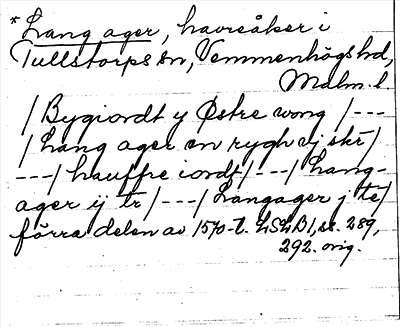 * Lang ager, havreåker i
Tullstorps sn, Vemmenhögs hd,
Malm. l.
/ Bygiordt y Østre wong / ---
/ Lang ager en rygh vj skr /
--- / hauffre iordt / --- / Lang-
ager ij tr / --- / Langager j te /
förra delen av 1570-t. LSLB1, sr. 289,
292. orig.